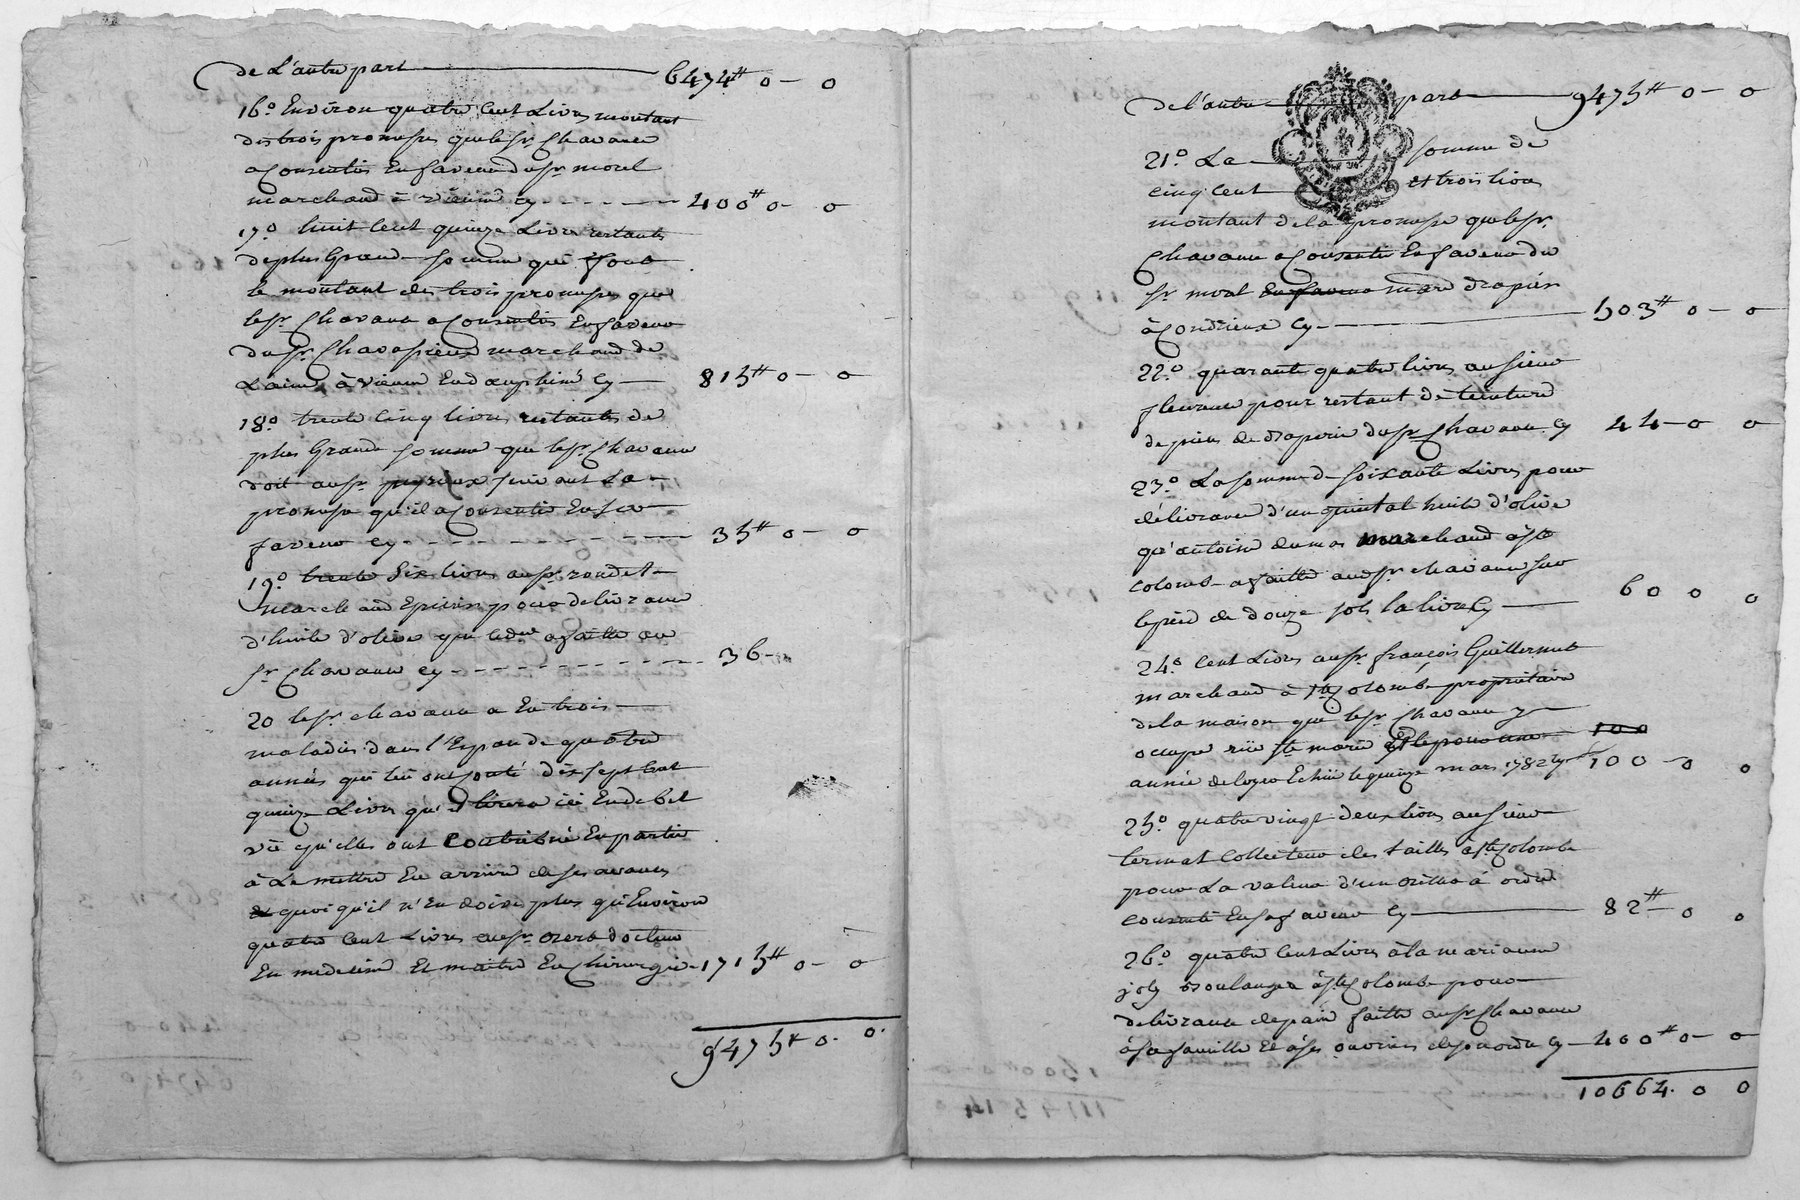 de L'autre part 6474# 0 - 0
16.° Environ quatre Cent Livres montant
des trois promesses que le Sr. Chavanne
a Consenties En faveur du Sr. morel
marchand à viënne cy - - - - - 400# 0 - 0
17.° huit Cent quinze Livres restants
de plus Grande somme qui font
le montant des trois promesses que
le Sr. Chavanne a Consenties En faveur
du Sr. Chavassieux marchand de
Laine, à vienne En dauphiné Cy - 815# 0 - 0
18.° trente Cinq livres restants de
plus Grande somme que le Sr. Chavanne
doit au Sr. suivant La
promesse qu'il a Consentie En sa
faveur cy - - - - - - - 35# 0 - 0
19.° trente Six livres au Sr. rondet
marchand Epicier pour délivrance
d'huile d'olive que led. a faitte au
Sr. Chavanne cy - - - - - - - 36 -
20 le Sr. chavanne a Eu trois
maladies dans l'Espace de quatre
années qui lui ont couté dix sept Cent
quinze Livres qu'il ici En debet
vû qu'elles ont Contribué En partie
à Le mettre En arriere de ses avances
quoiqu'il n'En doive plus qu'Environ
quatre Cent Livres au Sr. docteur
En medecine Et maitre En Chirurgie - 1715# 0 - 0
9475# 0 - 0.
de l'autre part 9475# 0 - 0
21.° La somme de
cinq Cent et trois livres
montant de la promesse que le Sr.
Chavanne a Consentie En faveur du
Sr. moral En faveur mard drapier
à Condrieux Cy - 503# 0 - 0
22.° quarante quatre livres au Sieur
fleurance pour restant de teinture
de pieces de draperie du Sr. Chavanne Cy 44 - 0 0
23.° La somme de soixante Livres pour
délivrance d'un quintal huile d'olive
qu'antoine dumas marchand à Ste
colombe a faitte aud. Sr. chavanne sur
le pied de douze sols la livre Cy - 60 0 0
24.° Cent Livres au Sr. françois Guillermet
marchand à Ste Colombe propriétaire
de la maison que le Sr. Chavanne y
occupe rüe Ste marie Et le pour une 100
année de loyer Echüe le quinze mars 1782 Cy 100 - 0 0
25.° quatre vingt deux livres au Sieur
Collecteur des tailles à Ste Colombe
pour La valeur d'un billet à ordre
consenti En sa faveur Cy - 82# - 0 0
26.° quatre Cent Livres à la marianne
joly Boulangere à Ste Colombe pour
délivrance de pain faitte au Sr. Chavanne
à sa famille Et à ses ouvriers de son ordre Cy - 400# 0 - 0
10664. 0 0